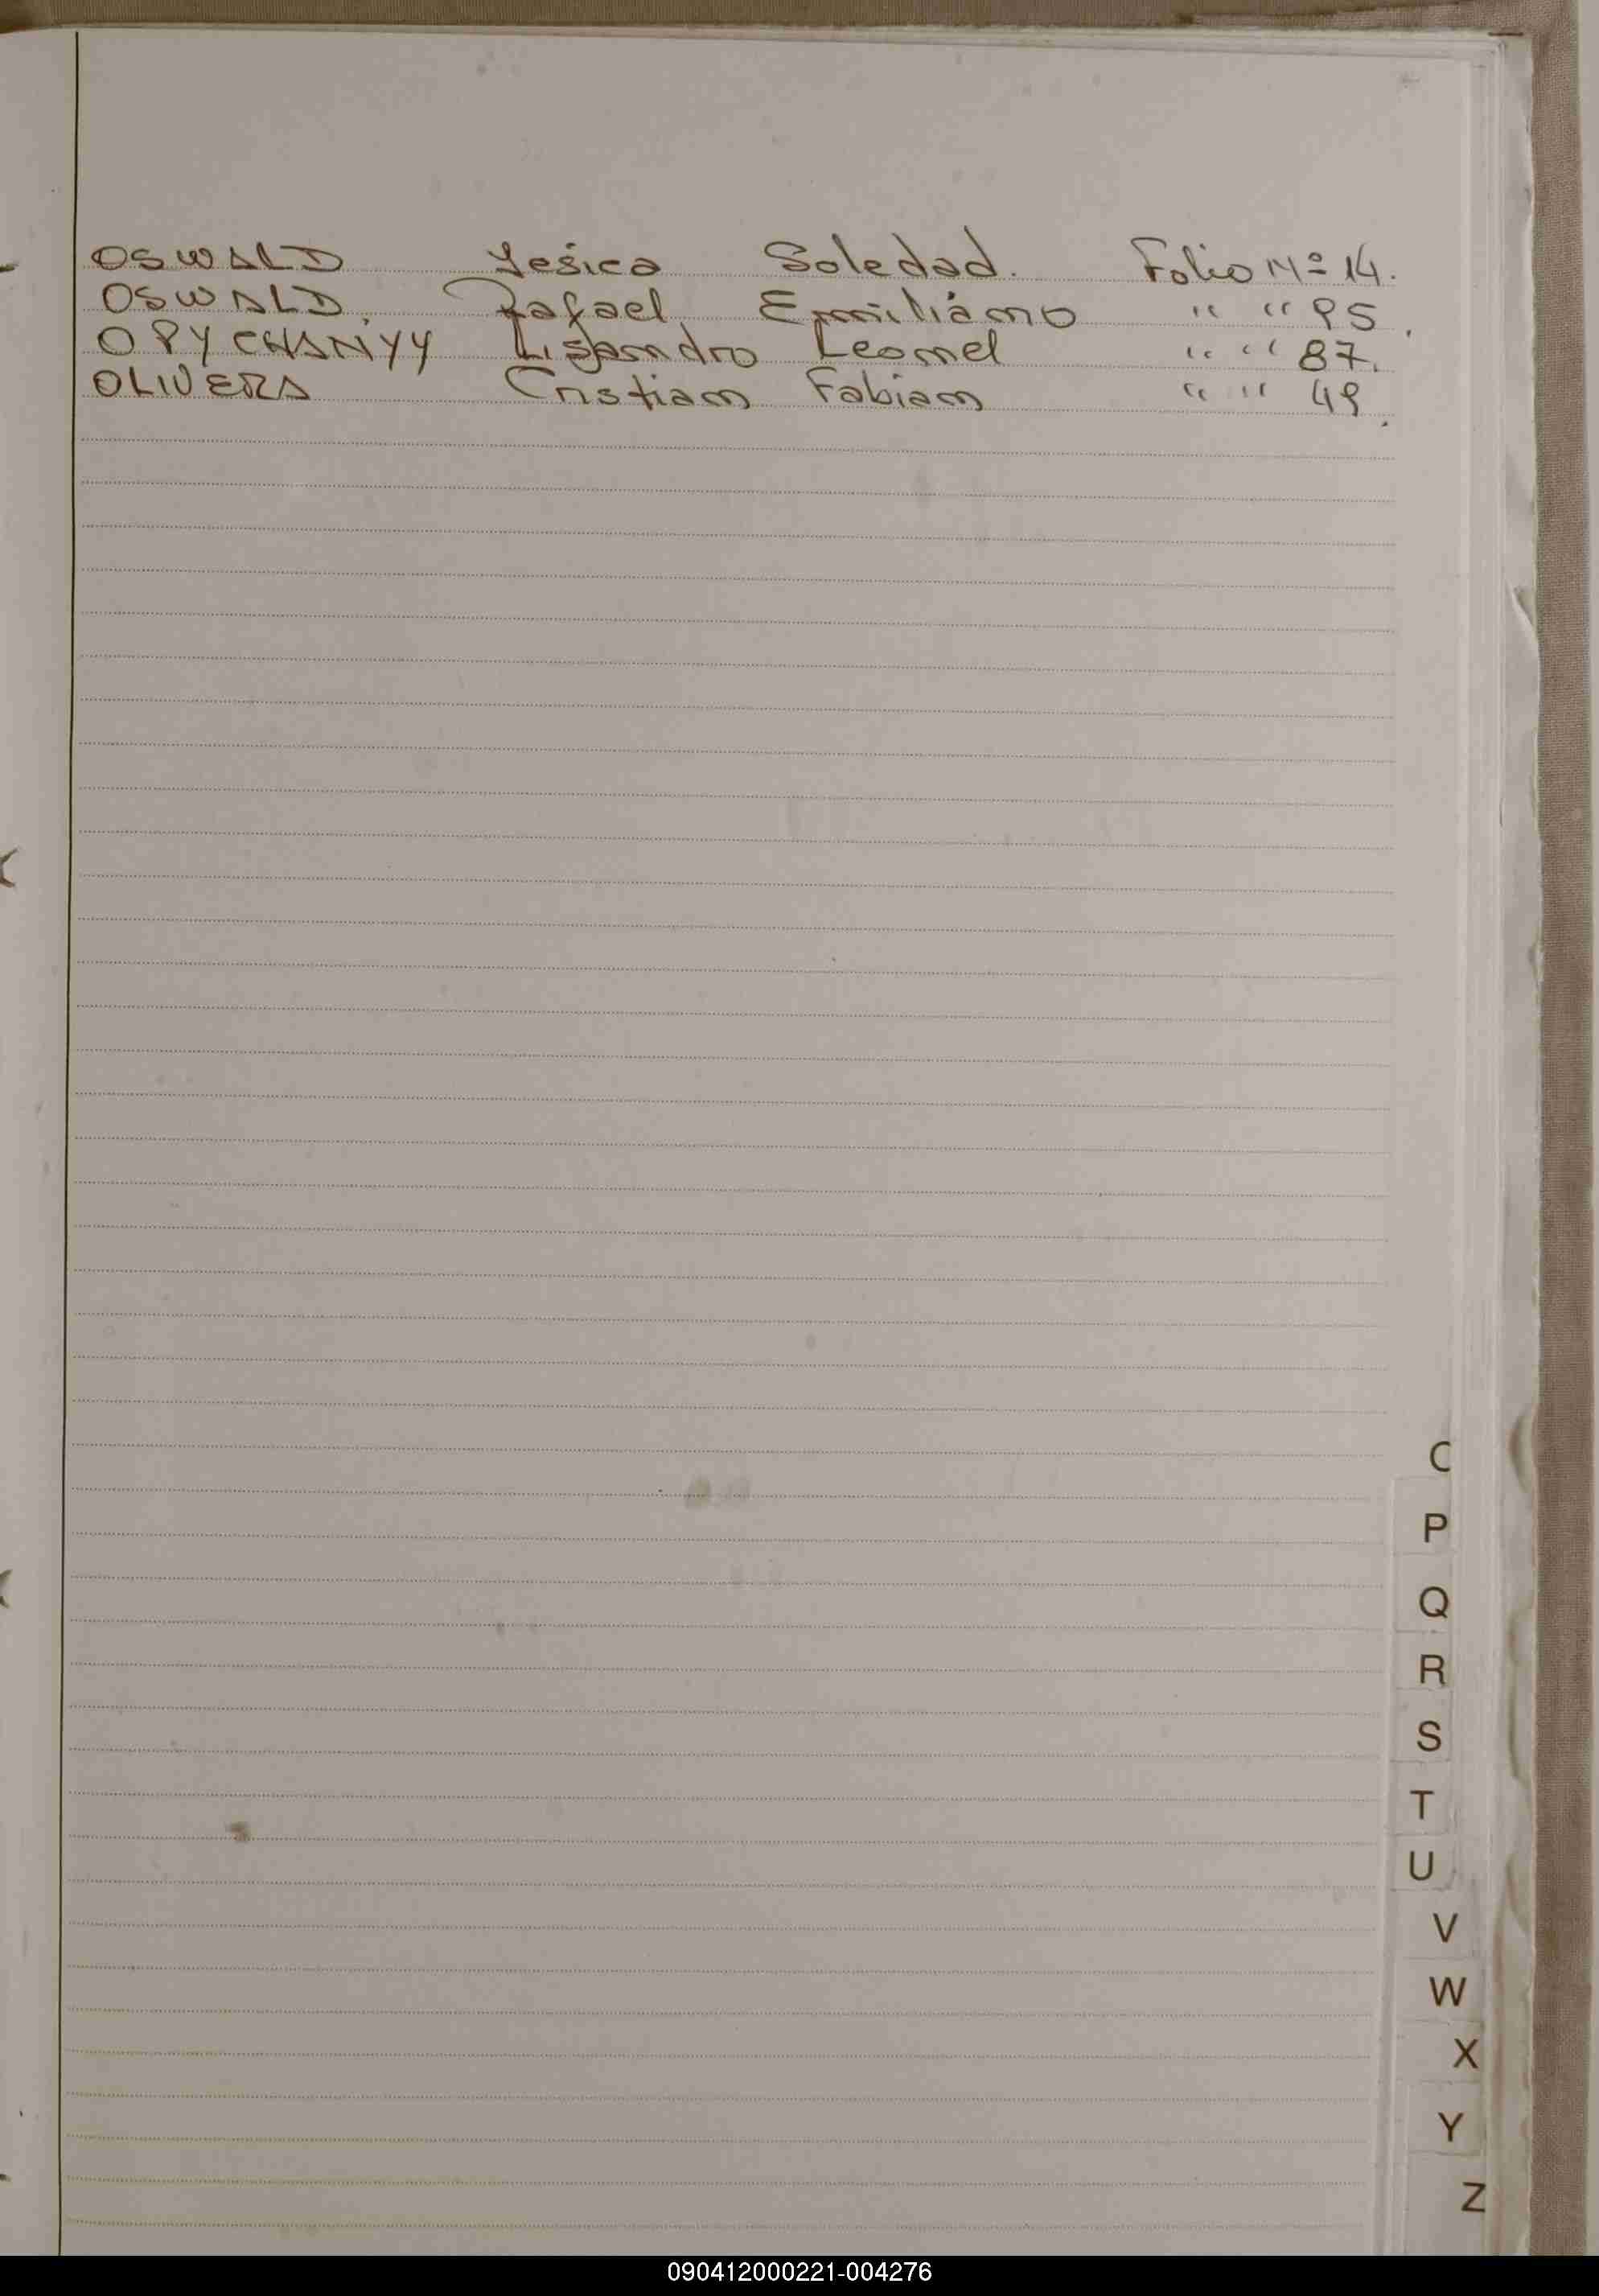 OSWALD Yesica Soledad. Folio Nº 14.
OSWALD. Rafael Emiliano " " 95.
OPYCHANYY Lisandro Leonel " " 87.
OLIVERA Cristian Fabian " " 49.
O
P
Q
R
S
T
U
V
W
X
Y
Z
090412000221-004276